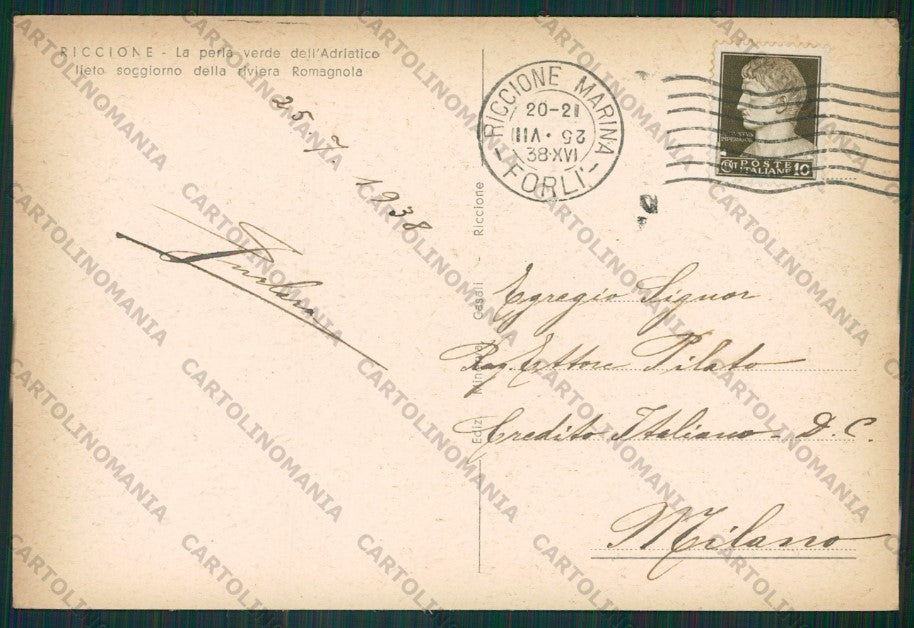 RICCIONE - La perla verde dell'Adriatico
lieto soggiorno della riviera Romagnola
25 7 1938
RICCIONE MARINA
20-21
25·VII
38·XVI
- FORLI' -
CENT POSTE ITALIANE 10
Ediz. Casali Riccione
Egregio Signor
Rag. Ettore Pilato
Credito Italiano - D. C.
Milano
CARTOLINOMANIA